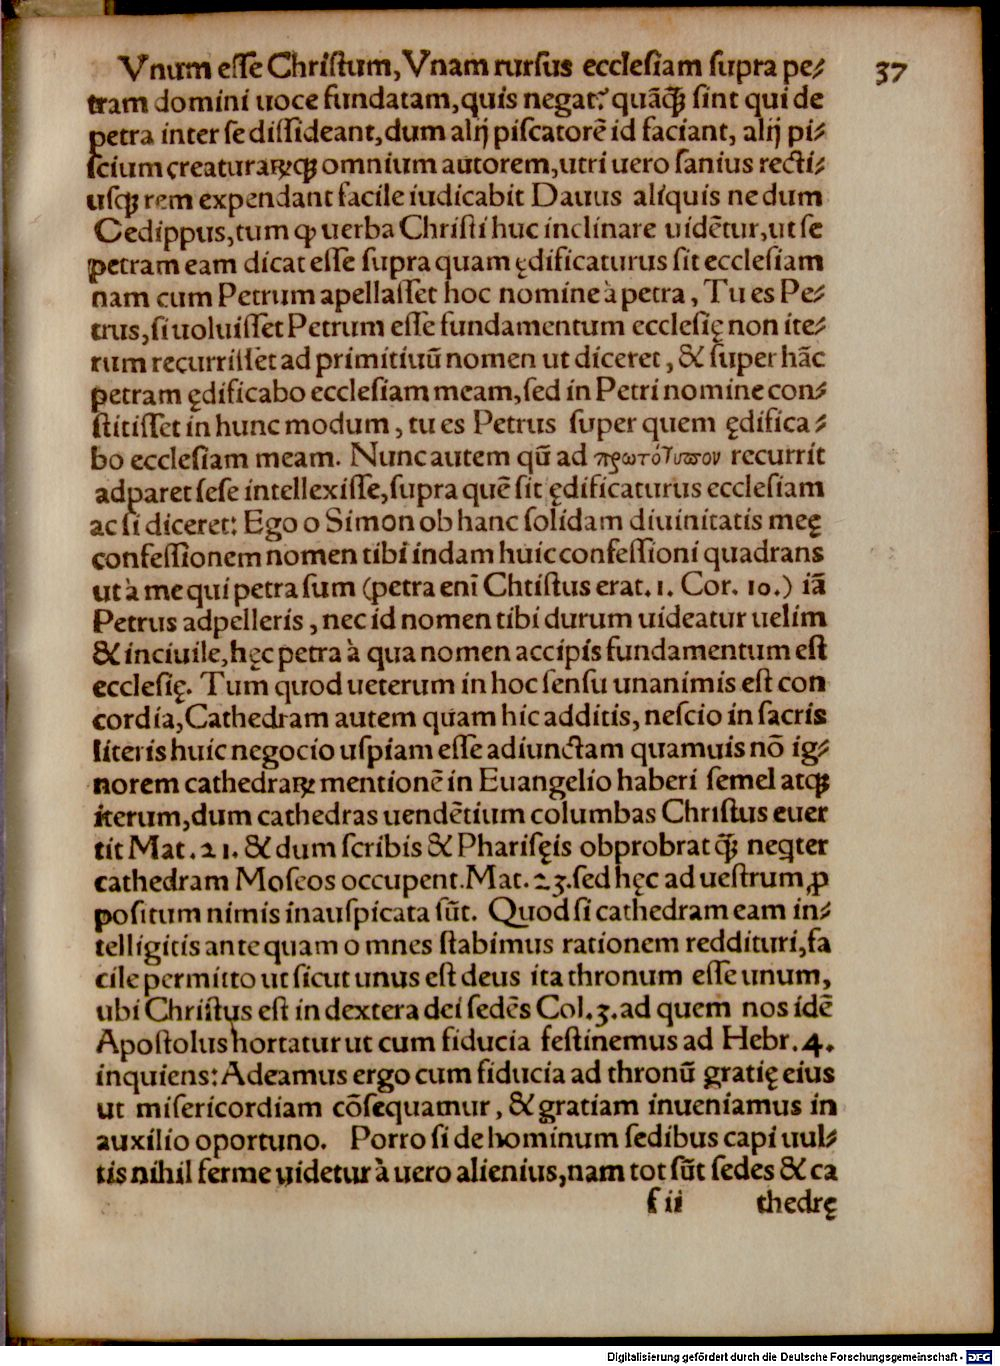 Vnum esse Christum, Vnam rursus ecclesiam supra pe⸗
37
tram domini uoce fundatam, quis negat? quãq̃ꝫ sint qui de
petra inter se dissideant, dum alij piscatorẽ id faciant, alij pi⸗
scium creaturarꝫqꝫ omnium autorem, utri uero sanius recti⸗
usqꝫ rem expendant facile iudicabit Dauus aliquis nedum
Oedippus, tum ꝙ uerba Christi huc inclinare uidẽtur, ut se
petram eam dicat esse supra quam ędificaturus sit ecclesiam
nam cum Petrum apellasset hoc nomine à petra, Tu es Pe⸗
trus, si uoluisset Petrum esse fundamentum ecclesię non ite⸗
rum recurrisset ad primitiuũ nomen ut diceret, & super hãc
petram ędificabo ecclesiam meam, sed in Petri nomine con⸗
stitisset in hunc modum, tu es Petrus super quem ędifica⸗
bo ecclesiam meam. Nunc autem qũ ad πρωτότυπον recurrit
adparet sese intellexisse, supra quẽ sit ędificaturus ecclesiam
ac si diceret: Ego o Simon ob hanc solidam diuinitatis meę
confessionem nomen tibi indam huic confessioni quadrans
ut à me qui petra sum (petra enĩ Chtistus erat. 1. Cor. 10.) iã
Petrus adpelleris, nec id nomen tibi durum uideatur uelim
& inciuile, hęc petra à qua nomen accipis fundamentum est
ecclesię. Tum quod ueterum in hoc sensu unanimis est con
cordia, Cathedram autem quam hic additis, nescio in sacris
literis huic negocio uspiam esse adiunctam quamuis nõ ig⸗
norem cathedrarꝫ mentionẽ in Euangelio haberi semel atqꝫ
iterum, dum cathedras uendẽtium columbas Christus euer
tit Mat. 21. & dum scribis & Pharisęis obprobrat q̃ꝫ neqter
cathedram Moseos occupent. Mat. 23. sed hęc ad uestrum ꝓ
positum nimis inauspicata sũt. Quod si cathedram eam in⸗
telligitis ante quam omnes stabimus rationem reddituri, fa
cile permitto ut sicut unus est deus ita thronum esse unum,
ubi Christus est in dextera dei sedẽs Col. 3. ad quem nos idẽ
Apostolus hortatur ut cum fiducia festinemus ad Hebr. 4.
inquiens: Adeamus ergo cum fiducia ad thronũ gratię eius
ut misericordiam cõsequamur, & gratiam inueniamus in
auxilio oportuno. Porro si de hominum sedibus capi uul⸗
tis nihil ferme uidetur à uero alienius, nam tot sũt sedes & ca
f ii thedrę
Digitalisierung gefördert durch die Deutsche Forschungsgemeinschaft - DFG